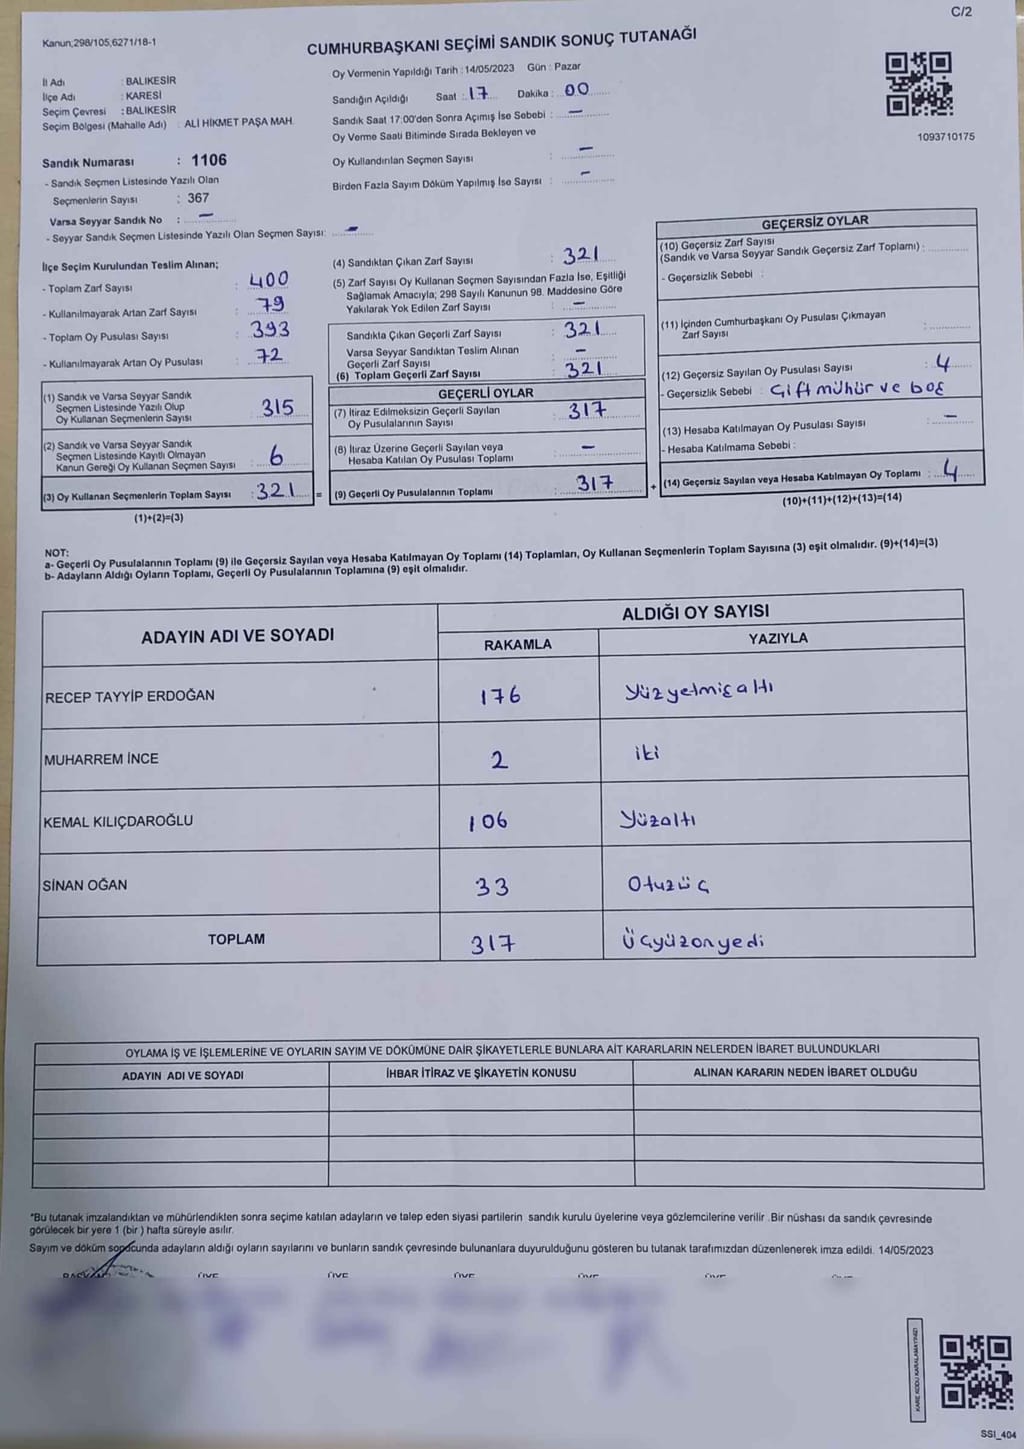 C/2
Kanun;298/105,6271/18-1
CUMHURBAŞKANI SEÇİMİ SANDIK SONUÇ TUTANAĞI
İl Adı : BALIKESİR
İlçe Adı : KARESİ
Seçim Çevresi : BALIKESİR
Seçim Bölgesi (Mahalle Adı) : ALİ HİKMET PAŞA MAH.
Sandık Numarası : 1106
- Sandık Seçmen Listesinde Yazılı Olan
Seçmenlerin Sayısı : 367
Varsa Seyyar Sandık No : -
- Seyyar Sandık Seçmen Listesinde Yazılı Olan Seçmen Sayısı: -
Oy Vermenin Yapıldığı Tarih : 14/05/2023 Gün : Pazar
Sandığın Açıldığı Saat : 17 Dakika : 00
Sandık Saat 17:00'den Sonra Açımış İse Sebebi : -
Oy Verme Saati Bitiminde Sırada Bekleyen ve
Oy Kullandırılan Seçmen Sayısı : -
Birden Fazla Sayım Döküm Yapılmış İse Sayısı : -
1093710175
İlçe Seçim Kurulundan Teslim Alınan;
- Toplam Zarf Sayısı : 400
- Kullanılmayarak Artan Zarf Sayısı : 79
- Toplam Oy Pusulası Sayısı : 393
- Kullanılmayarak Artan Oy Pusulası : 72
(1) Sandık ve Varsa Seyyar Sandık
Seçmen Listesinde Yazılı Olup
Oy Kullanan Seçmenlerin Sayısı : 315
(2) Sandık ve Varsa Seyyar Sandık
Seçmen Listesinde Kayıtlı Olmayan
Kanun Gereği Oy Kullanan Seçmen Sayısı : 6
(3) Oy Kullanan Seçmenlerin Toplam Sayısı : 321 =
(1)+(2)=(3)
(4) Sandıktan Çıkan Zarf Sayısı : 321
(5) Zarf Sayısı Oy Kullanan Seçmen Sayısından Fazla İse, Eşitliği
Sağlamak Amacıyla; 298 Sayılı Kanunun 98. Maddesine Göre
Yakılarak Yok Edilen Zarf Sayısı : -
Sandıkta Çıkan Geçerli Zarf Sayısı : 321
Varsa Seyyar Sandıktan Teslim Alınan
Geçerli Zarf Sayısı : -
(6) Toplam Geçerli Zarf Sayısı : 321
GEÇERLİ OYLAR
(7) İtiraz Edilmeksizin Geçerli Sayılan
Oy Pusulalarının Sayısı : 317
(8) İtiraz Üzerine Geçerli Sayılan veya
Hesaba Katılan Oy Pusulası Toplamı : -
(9) Geçerli Oy Pusulalarının Toplamı : 317 +
GEÇERSİZ OYLAR
(10) Geçersiz Zarf Sayısı
(Sandık ve Varsa Seyyar Sandık Geçersiz Zarf Toplamı) :
- Geçersizlik Sebebi :
(11) İçinden Cumhurbaşkanı Oy Pusulası Çıkmayan
Zarf Sayısı :
(12) Geçersiz Sayılan Oy Pusulası Sayısı : 4
- Geçersizlik Sebebi : Çift mühür ve boş
(13) Hesaba Katılmayan Oy Pusulası Sayısı : -
- Hesaba Katılmama Sebebi :
(14) Geçersiz Sayılan veya Hesaba Katılmayan Oy Toplamı : 4
(10)+(11)+(12)+(13)=(14)
NOT:
a- Geçerli Oy Pusulalarının Toplamı (9) ile Geçersiz Sayılan veya Hesaba Katılmayan Oy Toplamı (14) Toplamları, Oy Kullanan Seçmenlerin Toplam Sayısına (3) eşit olmalıdır. (9)+(14)=(3)
b- Adayların Aldığı Oyların Toplamı, Geçerli Oy Pusulalarının Toplamına (9) eşit olmalıdır.
ADAYIN ADI VE SOYADI ALDIĞI OY SAYISI
RAKAMLA YAZIYLA
RECEP TAYYİP ERDOĞAN 176 Yüzyetmişaltı
MUHARREM İNCE 2 iki
KEMAL KILIÇDAROĞLU 106 Yüzaltı
SİNAN OĞAN 33 Otuzüç
TOPLAM 317 Üçyüzonyedi
OYLAMA İŞ VE İŞLEMLERİNE VE OYLARIN SAYIM VE DÖKÜMÜNE DAİR ŞİKAYETLERLE BUNLARA AİT KARARLARIN NELERDEN İBARET BULUNDUKLARI
ADAYIN ADI VE SOYADI İHBAR İTİRAZ VE ŞİKAYETİN KONUSU ALINAN KARARIN NEDEN İBARET OLDUĞU
*Bu tutanak imzalandıktan ve mühürlendikten sonra seçime katılan adayların ve talep eden siyasi partilerin sandık kurulu üyelerine veya gözlemcilerine verilir .Bir nüshası da sandık çevresinde
görülecek bir yere 1 (bir ) hafta süreyle asılır.
Sayım ve döküm sonucunda adayların aldığı oyların sayılarını ve bunların sandık çevresinde bulunanlara duyurulduğunu gösteren bu tutanak tarafımızdan düzenlenerek imza edildi. 14/05/2023
BAŞKAN ÜYE ÜYE ÜYE ÜYE ÜYE
KARE KODU KARALAMAYINIZ!
SSI_404